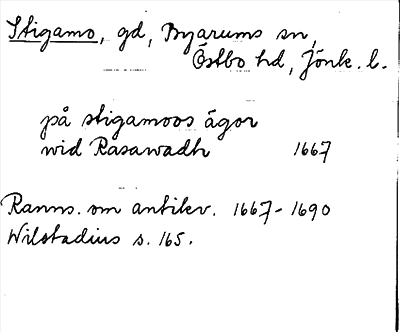 Stigamo, gd, Byarums sn,
Östbo hd, Jönk. l.
på stigamoos ägor
wid Rasawadh 1667
Ranns. om antikv. 1667-1690
Wilstadius s. 165.